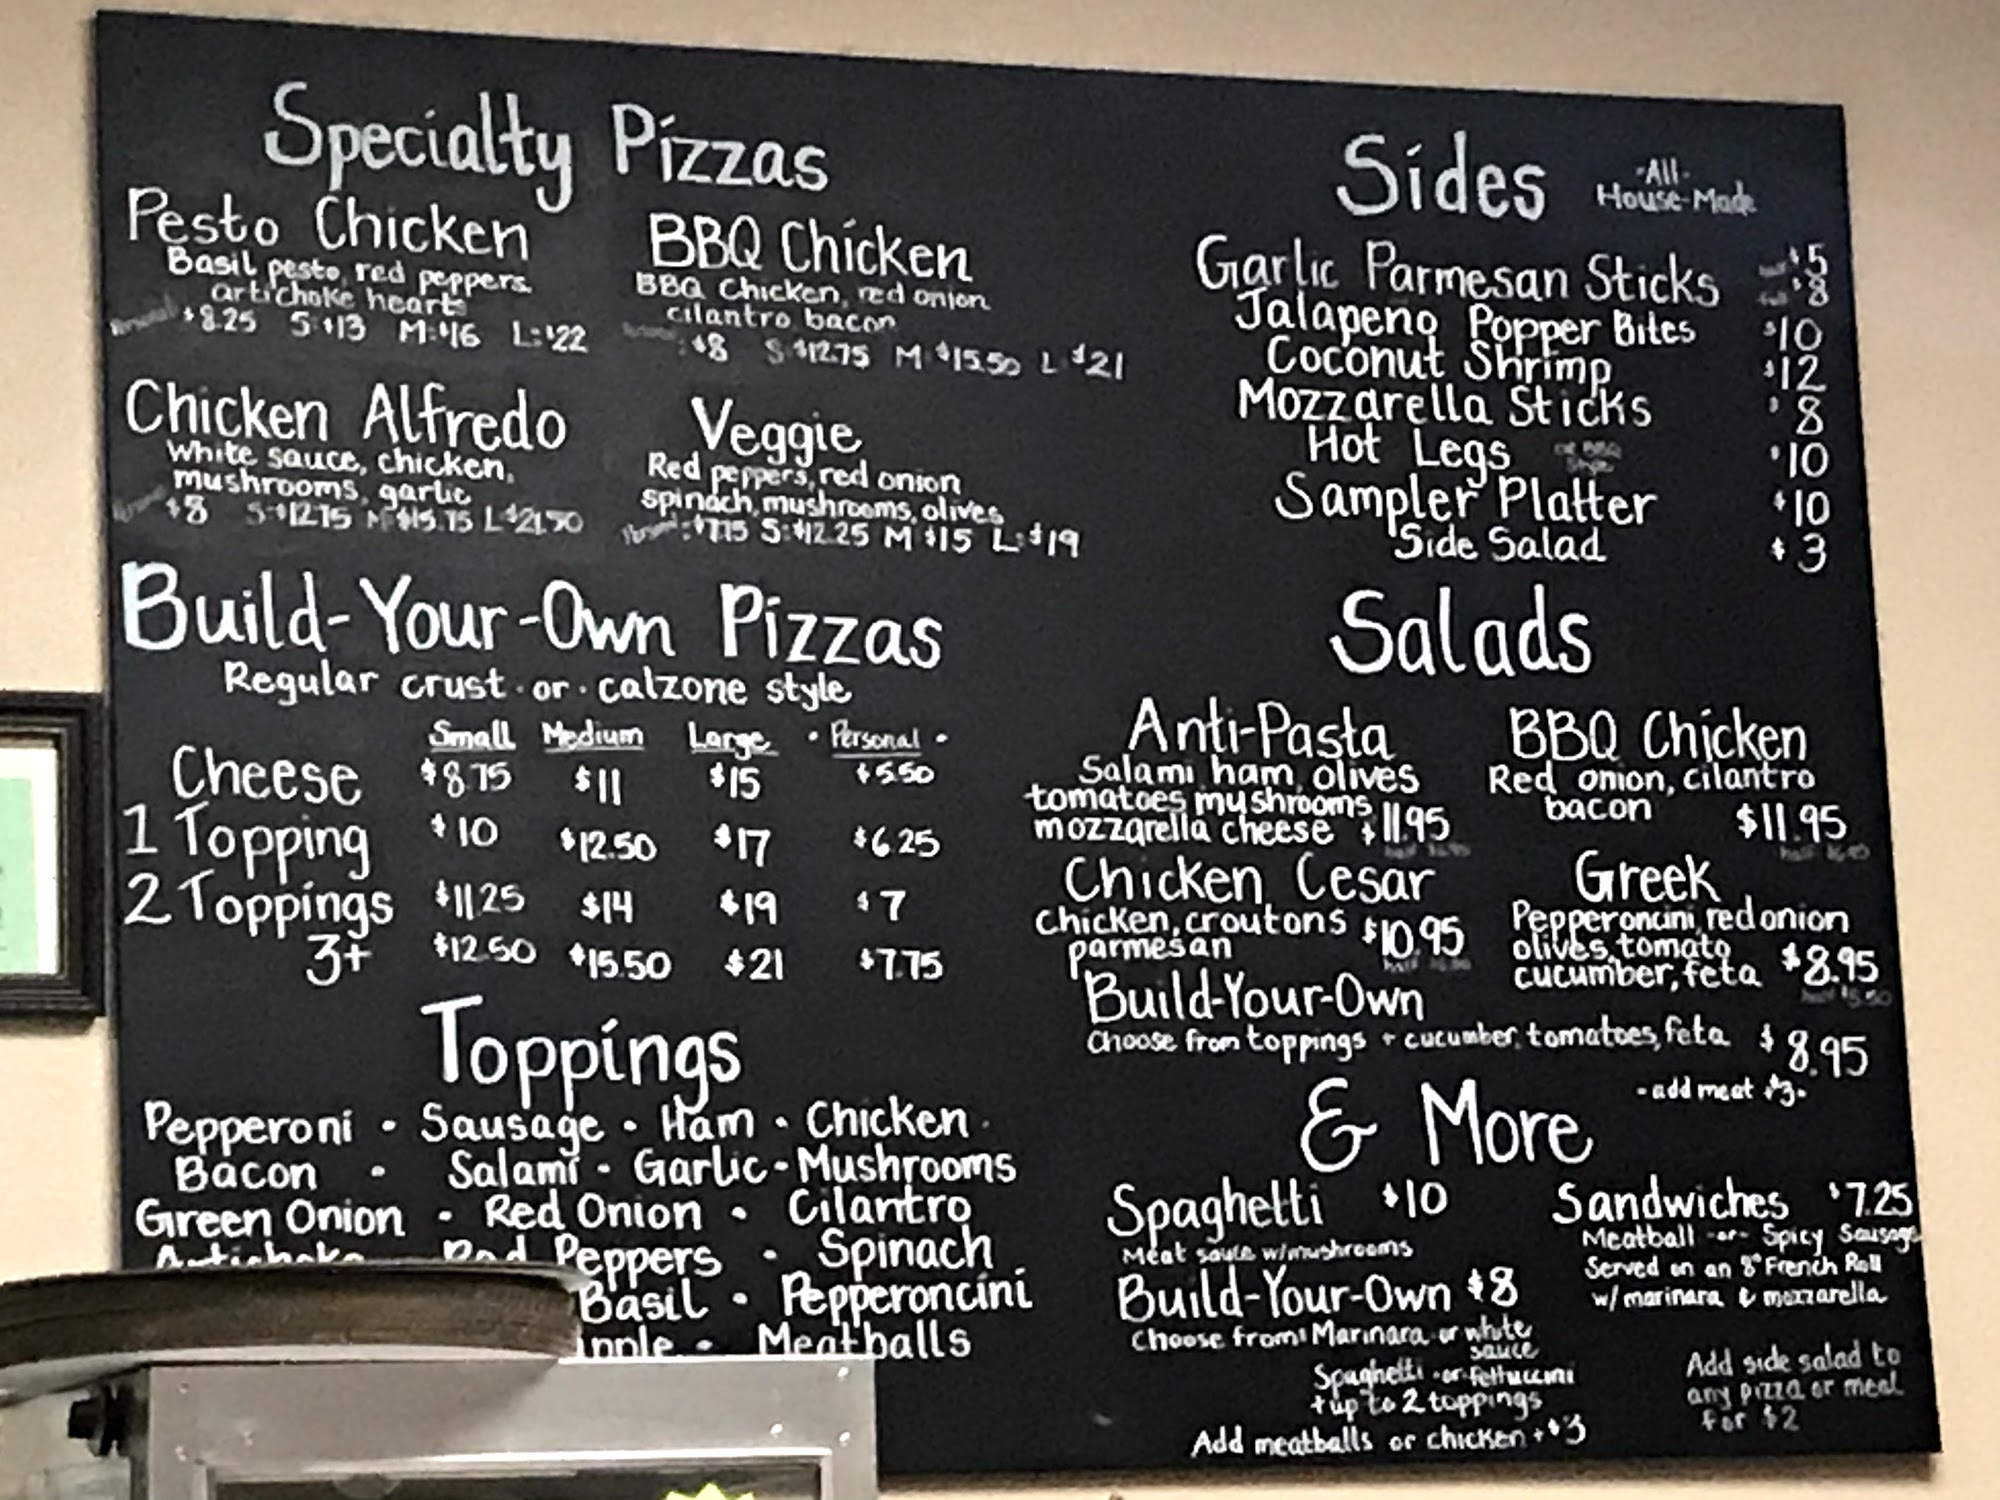 Specialty Pizzas
Pesto Chicken
Basil pesto, red peppers,
artichoke hearts
Personal $8.25 S:$13 M:$16 L:$22
BBQ Chicken
BBQ Chicken, red onion
cilantro bacon
: $8 S $12.75 M $15.50 L $21
Chicken Alfredo
White sauce, chicken,
mushrooms, garlic
$8 S:$12.75 M $15.75 L $21.50
Veggie
Red peppers, red onion
spinach, mushrooms, olives
Personal: $7.75 S:$12.25 M $15 L:$19
Build-Your-Own Pizzas
Regular crust · or · calzone style
Small Medium Large · Personal ·
Cheese $8.75 $11 $15 $5.50
1 Topping $10 $12.50 $17 $6.25
2 Toppings $11.25 $14 $19 $7
3+ $12.50 $15.50 $21 $7.75
Toppings
Pepperoni · Sausage · Ham · Chicken ·
Bacon · Salami · Garlic · Mushrooms
Green Onion · Red Onion · Cilantro
Artichoke Red Peppers · Spinach
Basil · Pepperoncini
Meatballs
Sides -All- House-Made
Garlic Parmesan Sticks half $5
full $8
Jalapeno Popper Bites $10
Coconut Shrimp $12
Mozzarella Sticks $8
Hot Legs or BBQ Style $10
Sampler Platter $10
Side Salad $3
Salads
Anti-Pasta
Salami, ham, olives
tomatoes, mushrooms,
mozzarella cheese $11.95
half
BBQ Chicken
Red onion, cilantro
bacon $11.95
half
Chicken Cesar
Chicken, croutons
parmesan $10.95
half
Greek
Pepperoncini, red onion
olives, tomato
cucumber, feta $8.95
half $5.50
Build-Your-Own
Choose from toppings + cucumber, tomatoes, feta $8.95
-add meat $3-
& More
Spaghetti $10
Meat sauce w/mushrooms
Build-Your-Own $8
Choose from: Marinara or white
sauce
Spaghetti -or- fettuccini
+up to 2 toppings
Add meatballs or chicken +$3
Sandwiches $7.25
Meatball -or- Spicy Sausage
Served on an 8" French Roll
w/ marinara & mozzarella
Add side salad to
any pizza or meal
for $2